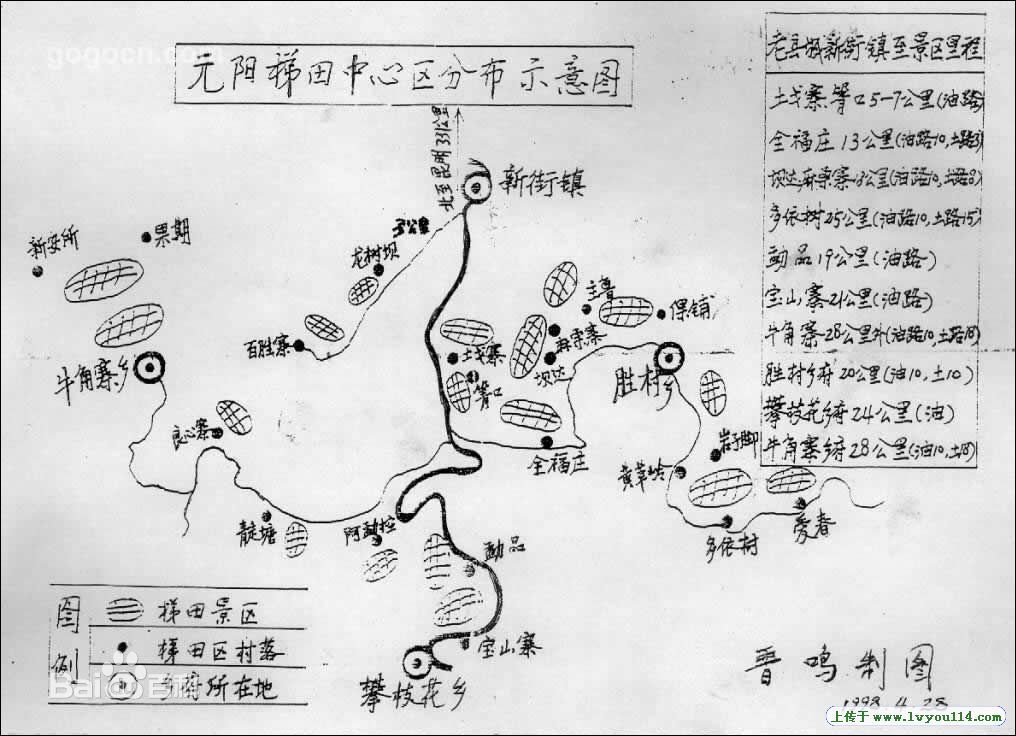 gogocn.com
元阳梯田中心区分布示意图
老县城新街镇至景区里程
土戈寨箐口5-7公里(油路)
全福庄13公里(油路10,土路3)
坝达麻栗寨18公里(油路10,土路8)
多依树25公里(油路10,土路15)
勐品19公里(油路)
宝山寨21公里(油路)
牛角寨28公里外(油路10,土路18)
胜村乡府20公里(油10,土10)
攀枝花乡府24公里(油)
牛角寨乡府28公里(油10,土18)
北至昆明331公里
新街镇
新安所
果期
龙树坝
主鲁
保铺
百胜寨
土戈寨
麻栗寨
坝达
箐口
牛角寨乡
胜村乡
良心寨
全福庄
岩子脚
黄草岭
多依树
爱春
靛塘
阿勐控
勐品
宝山寨
攀枝花乡
图例
梯田景区
梯田区村落
乡府所在地
Bai百科
晋鸣制图
1998.4.28
上传于 www.lvyou114.com